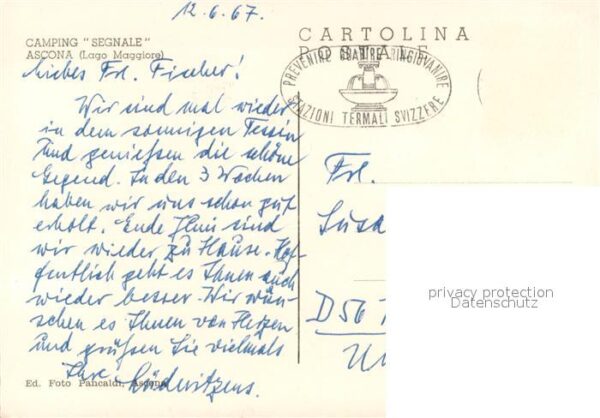 12.6.67.
CAMPING "SEGNALE"
ASCONA (Lago Maggiore)
CARTOLINA
POSTALE
PREVENIRE GUARIRE RINGIOVANIRE
STAZIONI TERMALI SVIZZERE
Liebes Frl. Fischer!
Wir sind mal wieder
in dem sonnigen Tessin
und genießen die schöne
Gegend. In den 3 Wochen
haben wir uns schon gut
erholt. Ende Juni sind
wir wieder zu Hause. Hof-
fentlich geht es Ihnen auch
wieder besser. Wir wün-
schen es Ihnen von Herzen
und grüßen Sie vielmals
Ihre
Ed. Foto Pancaldi, Ascona
Frl.
D 56
privacy protection
Datenschutz